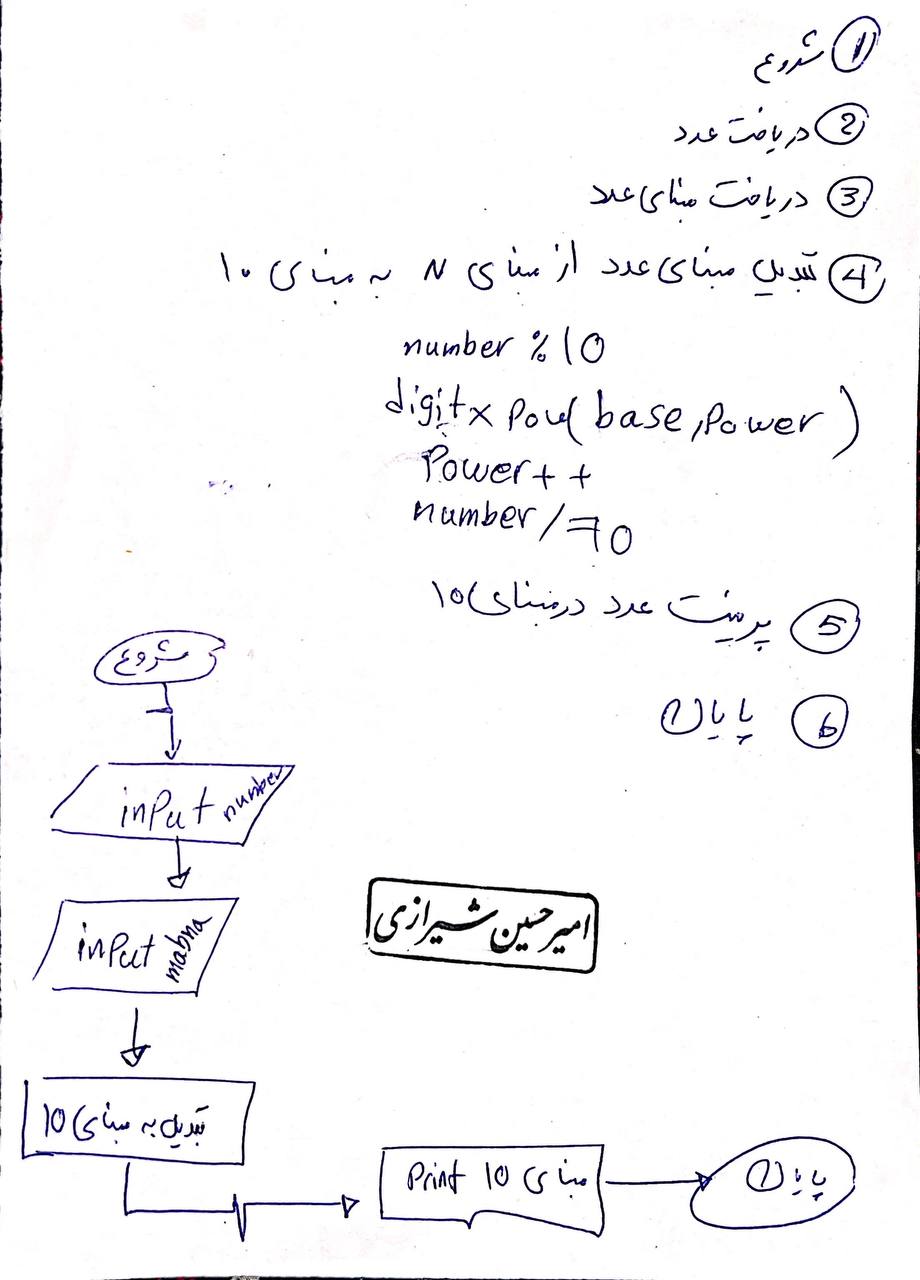 ① شروع
② دریافت عدد
③ دریافت مبنای عدد
④ تبدیل مبنای عدد از مبنای N به مبنای ۱۰
number % 10
digit x Pow( base, Power )
Power++
number /= 10
⑤ پرینت عدد در مبنای ۱۰
⑥ پایان
شروع
input number
input mabna
امیرحسین شیرازی
تبدیل به مبنای 10
Print 10 مبنای
پایان